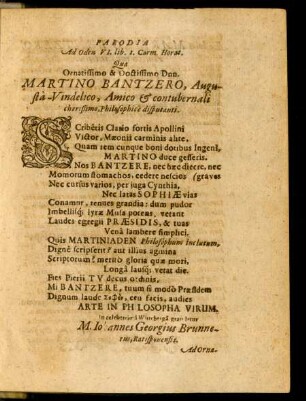 PARODIA
Ad Oden VI. lib. 1. Carm. Horat.
Qua
Ornatissimo & Doctissimo Dnn.
MARTINO BANTZERO, Augu-
sta-Vindelico, Amico & contubernali
charissimo, Philosophicè disputanti.
SCribêris Clario fortis Apollini
Victor, Mæonii carminis alite,
Quam rem cunque boni doctibus Ingenî,
MARTINO duce gesseris.
Nos BANTZERE, nec hæc dicere, nec
Momorum stomachos, cedere nescios (graves
Nec cursus varios, per juga Cynthia,
Nec latas SOPHIÆ vias
Conamur, tenues grandia: dum pudor
Imbellisq; lyræ Musa potens, vetant
Laudes egregii PRÆSIDIS, & tuas
Venâ lambere simplici.
Quis MARTINIADEN Philosophum inclutum,
Dignè scripserit? aut illius agmina
Scriptorum? merito gloria quæ mori,
Longâ lausq; vetat die.
Fies Pierii TV decus ordinis,
Mi BANTZERE, tuum si modò Præsidem
Dignum laude σοφῶν, ceu facis, audies
ARTE IN PHILOSOPHA VIRUM.
M. Iohannes Georgius Brunne-
rus, Ratisponensis.
Ad Orna-